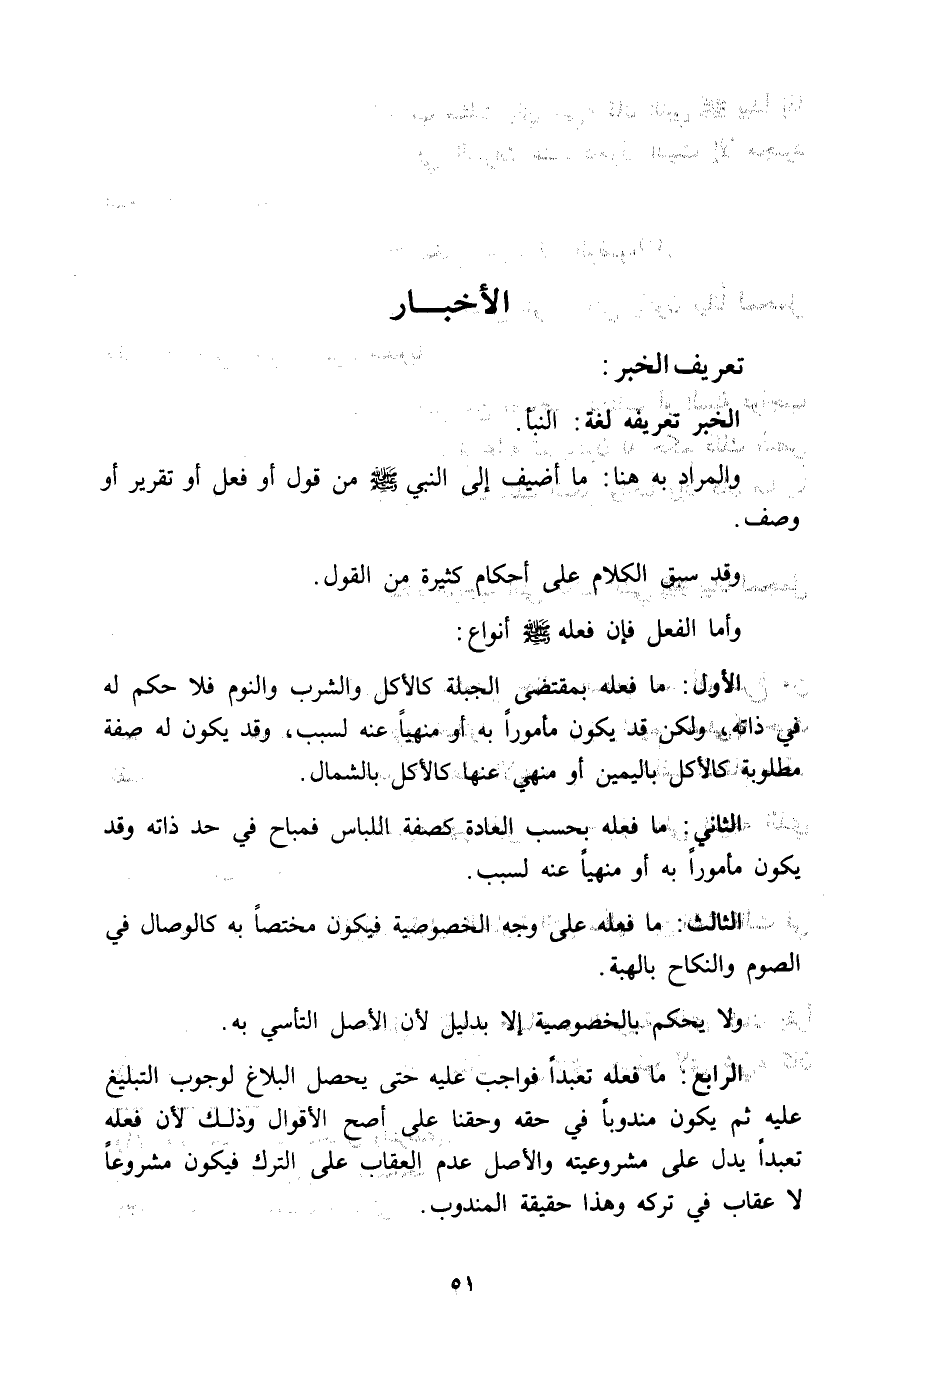 الأخبـــار
تعريف الخبر :
الخبر تعريفه لغة: النبأ.
والمراد به هنا: ما أضيف إلى النبي ﷺ من قول أو فعل أو تقرير أو
وصف.
وقد سبق الكلام على أحكام كثيرة من القول.
وأما الفعل فإن فعله ﷺ أنواع:
الأول: ما فعله بمقتضى الجبلة كالأكل والشرب والنوم فلا حكم له
في ذاته، ولكن قد يكون مأموراً به أو منهياً عنه لسبب، وقد يكون له صفة
مطلوبة كالأكل باليمين أو منهي عنها كالأكل بالشمال.
الثاني: ما فعله بحسب العادة كصفة اللباس فمباح في حد ذاته وقد
يكون مأموراً به أو منهياً عنه لسبب.
الثالث: ما فعله على وجه الخصوصية فيكون مختصاً به كالوصال في
الصوم والنكاح بالهبة.
ولا يحكم بالخصوصية إلا بدليل لأن الأصل التأسي به.
الرابع: ما فعله تعبداً فواجب عليه حتى يحصل البلاغ لوجوب التبليغ
عليه ثم يكون مندوباً في حقه وحقنا على أصح الأقوال وذلك لأن فعله
تعبداً يدل على مشروعيته والأصل عدم العقاب على الترك فيكون مشروعاً
لا عقاب في تركه وهذا حقيقة المندوب.
٥١